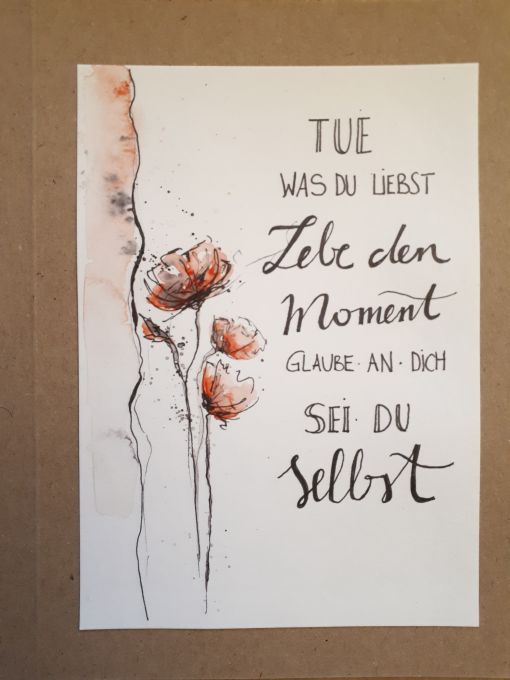 TUE
WAS DU LIEBST
Lebe den
Moment
GLAUBE · AN · DICH
SEI · DU
Selbst